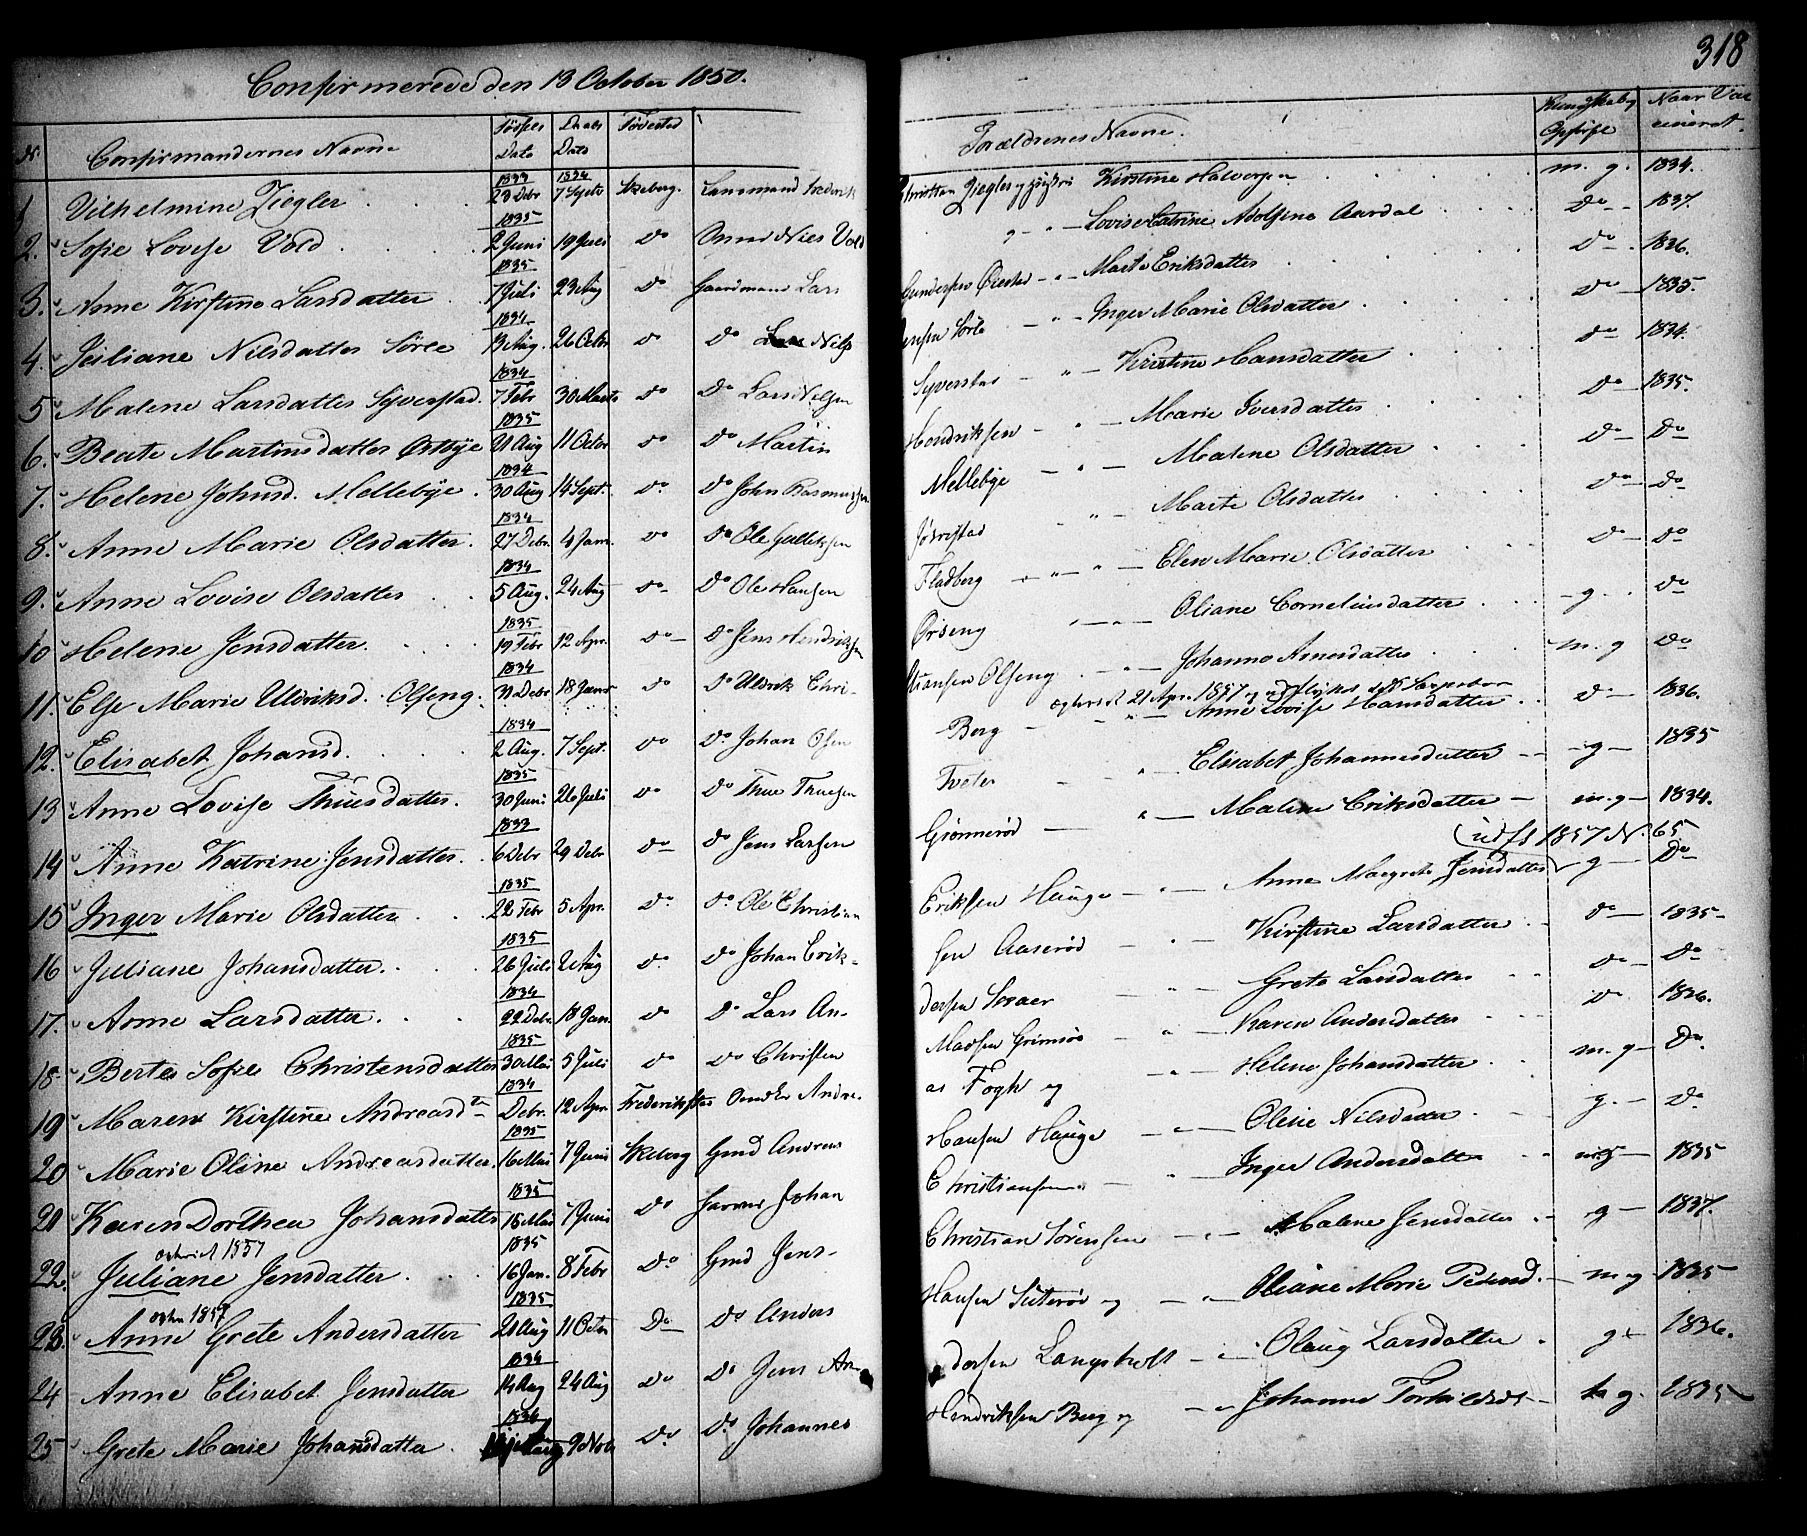 318
Confirmerede den 13 October 1850.
Nr. Confirmandernes Navne Fødsels Dato Daabs Dato Døbested Forældrenes Navne. Naar Vaccineret.
1 Vilhelmine Ziegler 1833 23 Debr 1834 7 Septr Skeberg. Lensmand Frederik Christian Ziegler og Kirstine Halvorsen m. g. 1834.
2. Sofie Lovise Vold 1835 2 Juni 19 Juli do Niels Vold og Lovise Catrine Adolfine Aardal do 1837.
3. Anne Kirstine Larsdatter 1835 7 Juli 23 Aug do Gaardmand Lars Gundersen Øiestad " Marte Eriksdatter do 1836.
4. Juliane Nilsdatter Sørle 1834 13 Aug. 26 Octbr do do Nils Jensen Sørle " Inger Marie Olsdatter do 1835.
5 Malene Larsdatter Syverstad. 1834 7 Febr 30 Marts do do Lars Nilsen Syverstad " Kirstine Hansdatter do 1834.
6. Beate Martinsdatter Østbye 1835 21 Aug 11 Octbr do do Martin Hendriksen " Marie Iversdatter do 1835.
7. Helene Johnsd. Mellebye. 1834 30 Aug 14 Sept. do do John Rasmussen Mellebye " Malene Olsdatter do do
8. Anne Marie Olsdatter. 1834 27 Debr. 4 Jan. do do Ole Gulliksen " Marte Olsdatter do do
9. Anne Lovise Olsdatter 1834 5 Aug. 24 Aug do do Ole Hansen Fladberg " Elen Marie Olsdatter do do
10 Helene Jensdatter. 1835 19 Febr 12 Apr. do do Jens Hendriksen Ørseng " Oliane Corneliusdatter g. do
11. Else Marie Uldriksd. Olseng. 1834 31 Debr 18 Janr do do Uldrik Christiansen Olseng " Johanne Arnesdatter m. g do
12. Elisabet Johansd. 1834 2 Aug. 7 Sept. do do Johan Olsen Berg ægteviet 21 Apr. 1857 " Anne Lovise Hansdatter do 1836.
13 Anne Lovise Thuesdatter. 1835 30 Juni 26 Juli do do Thue Thuesen Tveter " Elisabet Johannesdatter g 1835
14 Anne Katrine Jensdatter. 1833 6 Debr 29 Debr do do Jens Larsen Grønnerød " Malene Eriksdatter m. g 1834.
(udfl 1857 N. 65.
15 Inger Marie Olsdatter 1835 22 Febr 5 Apr. do do Ole Eriksen Hauge " Anne Margrete Jensdatter g do
16 Juliane Johansdatter. 1835 26 Juli 2 Aug do do Johan Eriksen Aaserød " Kirstine Larsdatter do 1835
17. Anne Larsdatter. 1834 22 Debr. 18 Jan. do do Lars Andersen " Grete Larsdatter do do
18. Berte Sofie Christensdatter 1835 30 Mai 5 Juli do do Christen Madsen Grimsø " Karen Andersdatter do 1836.
19 Maren Kirstine Andreasdtr 1834 Debr. 12 Apr. Frederikstad Andreas Fogh og Helene Johansdatter m. g do
20 Marie Oline Andreasdatter. 1835 16 Mai 7 Juni Skeberg Gmd Andreas Hansen Hauge " Oline Nilsdatter g. do
21 Karen Dorthea Johansdatter 1835 15 Mai 7 Juni do Johan Christiansen " Inger Andersdatter mg 1835
22. Juliane Jensdatter ægteviet 1857 1835 16 Jan. 8 Febr do Gmd Jens Christian Sørensen " Malene Jensdatter g 1837.
23. Anne Grete Andersdatter 1857 1835 21 Aug 11 Octbr Do do Anders Hansen og Oliane Marie Pedersd. mg 1835
24 Anne Elisabet Jensdatter 1834 14 Aug 24 Aug do do Jens Andersen Langholt " Olaug Larsdatter g 1836.
25 Grete Marie Johansdatter 1834 9 Nov do do Johannes Hendriksen Berg og Johanne g. 1835